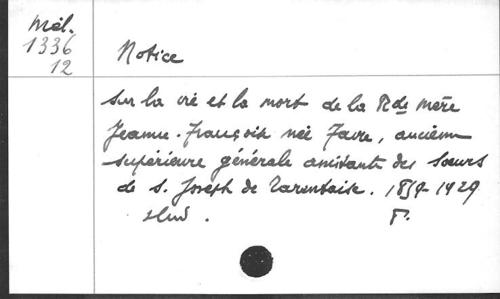 Mél.
1336
12
Notice
sur la vie et la mort de la Rde Mère
Jeanne-Françoise née Favre, ancienne
supérieure générale assistante des soeurs
de S. Joseph de Tarentaise. 1859-1929